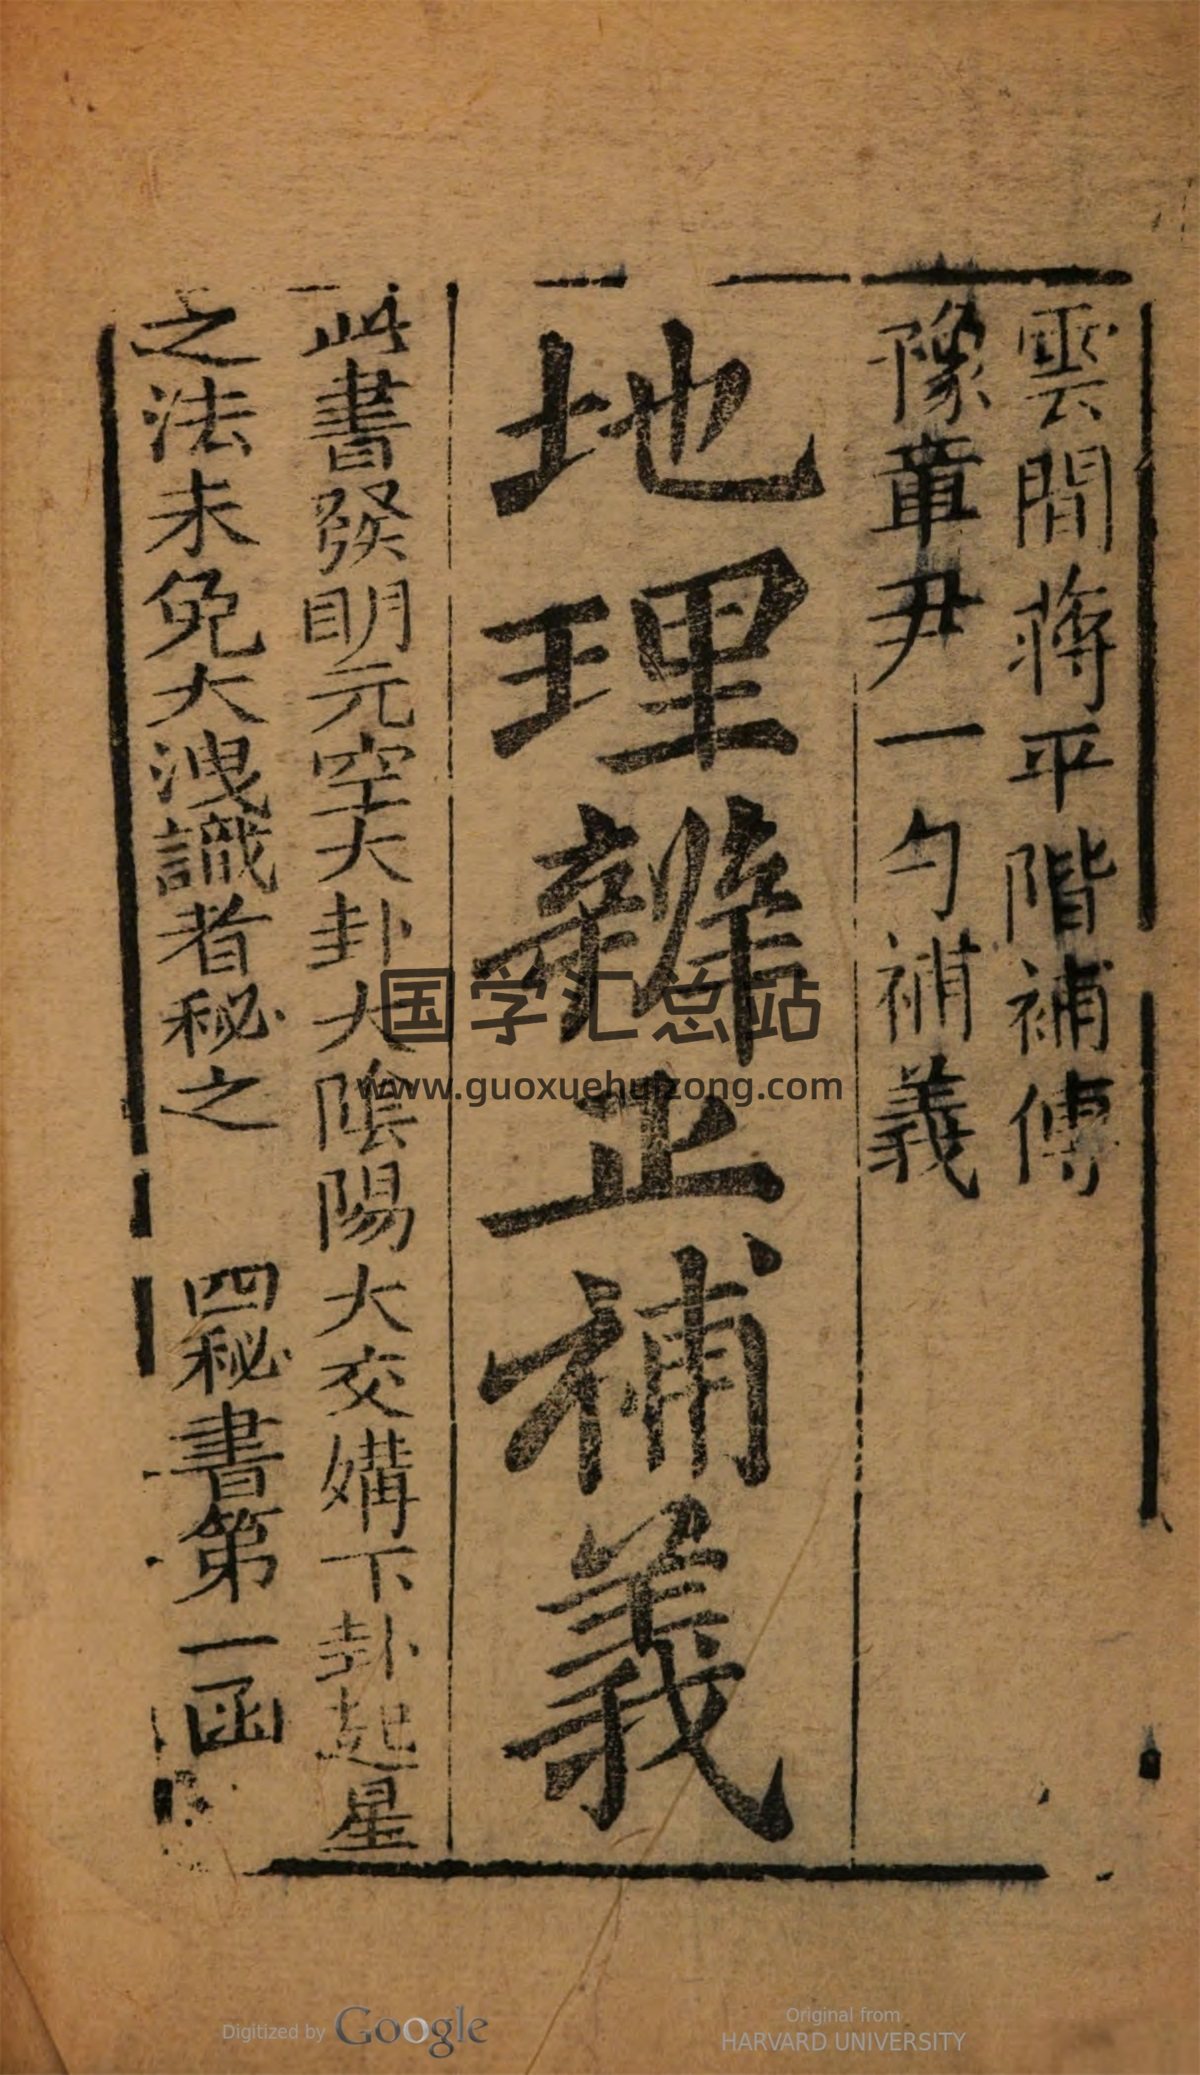 雲間蔣平階補傳
豫章尹一勺補義
地理辨正補義
此書發明元空大卦大陰陽大交媾下卦起星
之法未免大洩識者秘之 四秘書第一函
国学汇总站
www.guoxuehuizong.com
Digitized by Google
Original from
HARVARD UNIVERSITY